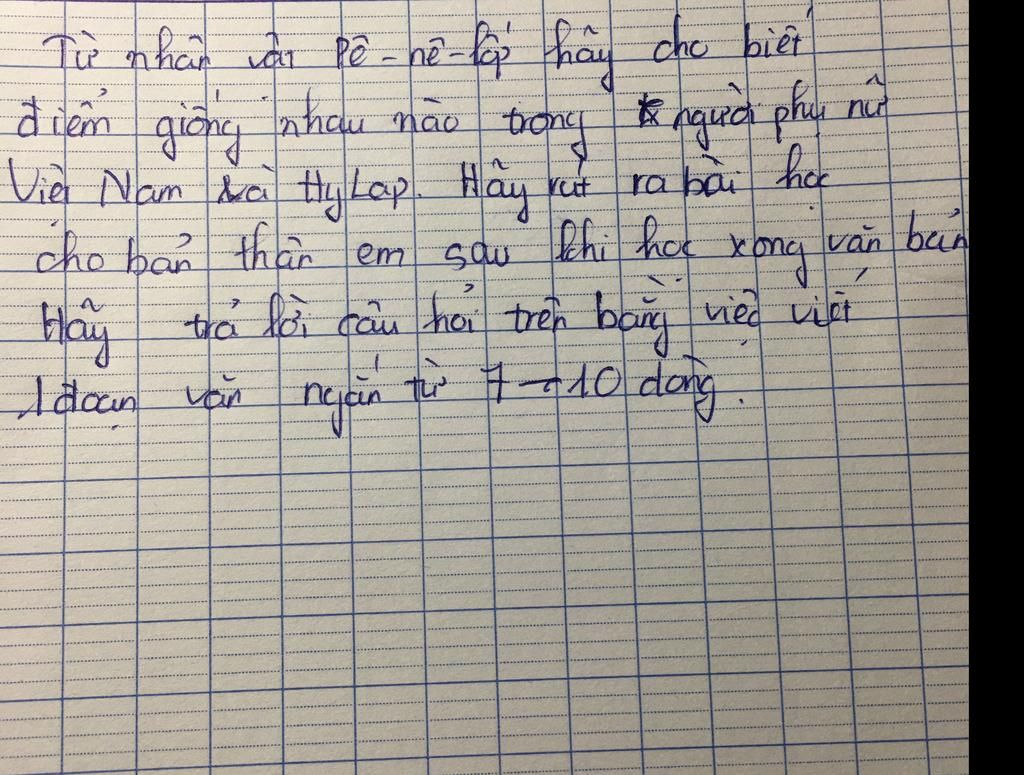 Từ nhân vật Pê-nê-lốp hãy cho biết
điểm giống nhau nào trong người phụ nữ
Việt Nam và Hy Lạp. Hãy rút ra bài học
cho bản thân em sau khi học xong văn bản
Hãy trả lời câu hỏi trên bằng việc viết
1 đoạn văn ngắn từ 7 → 10 dòng.